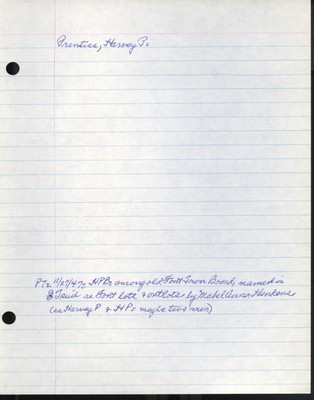 Prentiss, Harvey P.
PT2 4/27/47: HPP among old Fort Town Board, named in
re Fort lots & outlots by Mabel Anna Henkens.
(as Harvey P & HP: maybe two men)